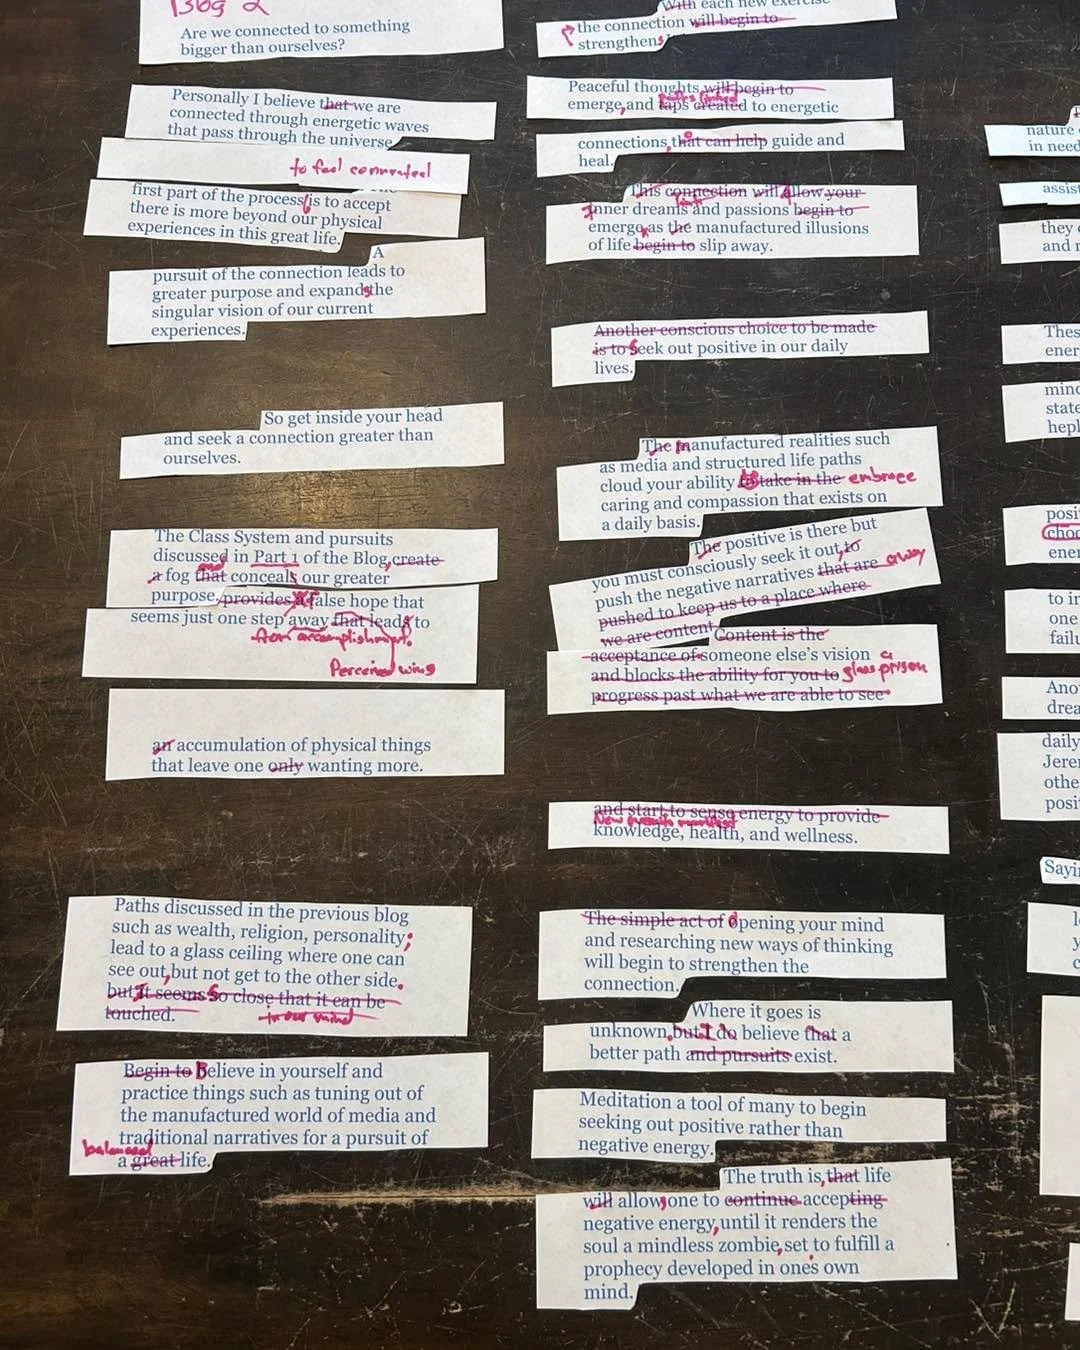 Blog 2
Are we connected to something
bigger than ourselves?
Personally I believe that we are
connected through energetic waves
that pass through the universe
to feel connected
first part of the process is to accept
there is more beyond our physical
experiences in this great life.
A
pursuit of the connection leads to
greater purpose and expands the
singular vision of our current
experiences.
So get inside your head
and seek a connection greater than
ourselves.
The Class System and pursuits
discussed in Part 1 of the Blog, create
a fog that conceals our greater
purpose, provides a false hope that
seems just one step away that leads to
from accomplishment.
Perceived wins
an accumulation of physical things
that leave one only wanting more.
Paths discussed in the previous blog
such as wealth, religion, personality;
lead to a glass ceiling where one can
see out, but not get to the other side.
but It seems So close that it can be
touched.
in our mind
Begin to Believe in yourself and
practice things such as tuning out of
the manufactured world of media and
traditional narratives for a pursuit of
balanced
a great life.
With each new exercise
the connection will begin to
strengthens
Peaceful thoughts will begin to
emerge, and taps created to energetic
connections, that can help guide and
heal.
This connection will allow your
Inner dreams and passions begin to
emerge as the manufactured illusions
of life begin to slip away.
Another conscious choice to be made
is to Seek out positive in our daily
lives.
The manufactured realities such
as media and structured life paths
cloud your ability to take in the embrace
caring and compassion that exists on
a daily basis.
The positive is there but
you must consciously seek it out, to
push the negative narratives that are away
pushed to keep us to a place where
we are content.
Content is the
acceptance of someone else's vision a
and blocks the ability for you to glass prison
progress past what we are able to see
and start to sense energy to provide
New
knowledge, health, and wellness.
The simple act of opening your mind
and researching new ways of thinking
will begin to strengthen the
connection.
Where it goes is
unknown, but I do believe that a
better path and pursuits exist.
Meditation a tool of many to begin
seeking out positive rather than
negative energy.
The truth is, that life
will allows one to continue accepting
negative energy, until it renders the
soul a mindless zombie, set to fulfill a
prophecy developed in one's own
mind.
nature
in need
assist
they
and
Thes
ener
mind
state
hepl
posi
choo
ener
to in
one
failu
Ano
drea
daily
Jere
othe
posi
Sayi